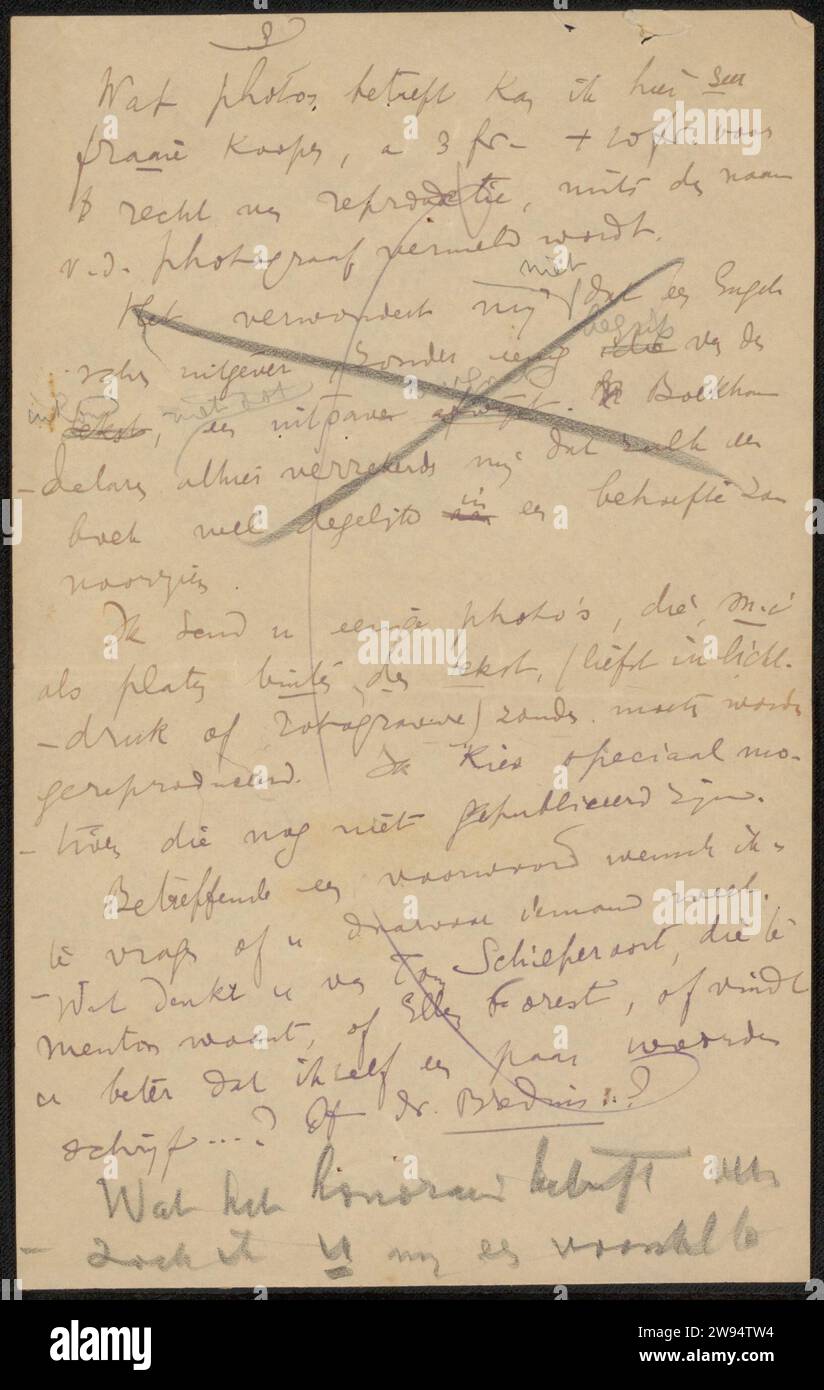 3
Wat photos betreft kan ik hier zeer
fraaie koopen, a 3 fr. + 10 fr. voor
't recht van reproductie, mits de naam
v.d. photograaf vermeld wordt.
niet
Het verwondert mij dat een Engel-
begrip
sche uitgever, zonder eenig van den
tekst, een uitgaven. Boekhan-
-delaren alhier verzekerden mij dat zulk een
boek wel degelijk in een behoefte zou
voorzien.
Ik zend u eenige photo's, die, m.i.
als platen buiten den tekst, (liefst in licht-
-druk of rotogravure) zouden moeten worden
gereproduceerd. Ik kies speciaal mo-
-tieven die nog niet gepubliceerd zijn.
Betreffende een voorwoord wensch ik u
te vragen of u daarvoor iemand weet.
-Wat denkt u van Tom Schilperoort, die te
Menton woont, of Ellen Forest, of vindt
u beter dat ik zelf een paar woorden
schrijf....? Of dr. Bredius..?
Wat het honorarium betreft
- zoek ik u mij een voorstel te
alamy
alamy
alamy
alamy
alamy
Image ID: 2W94TW4
www.alamy.com